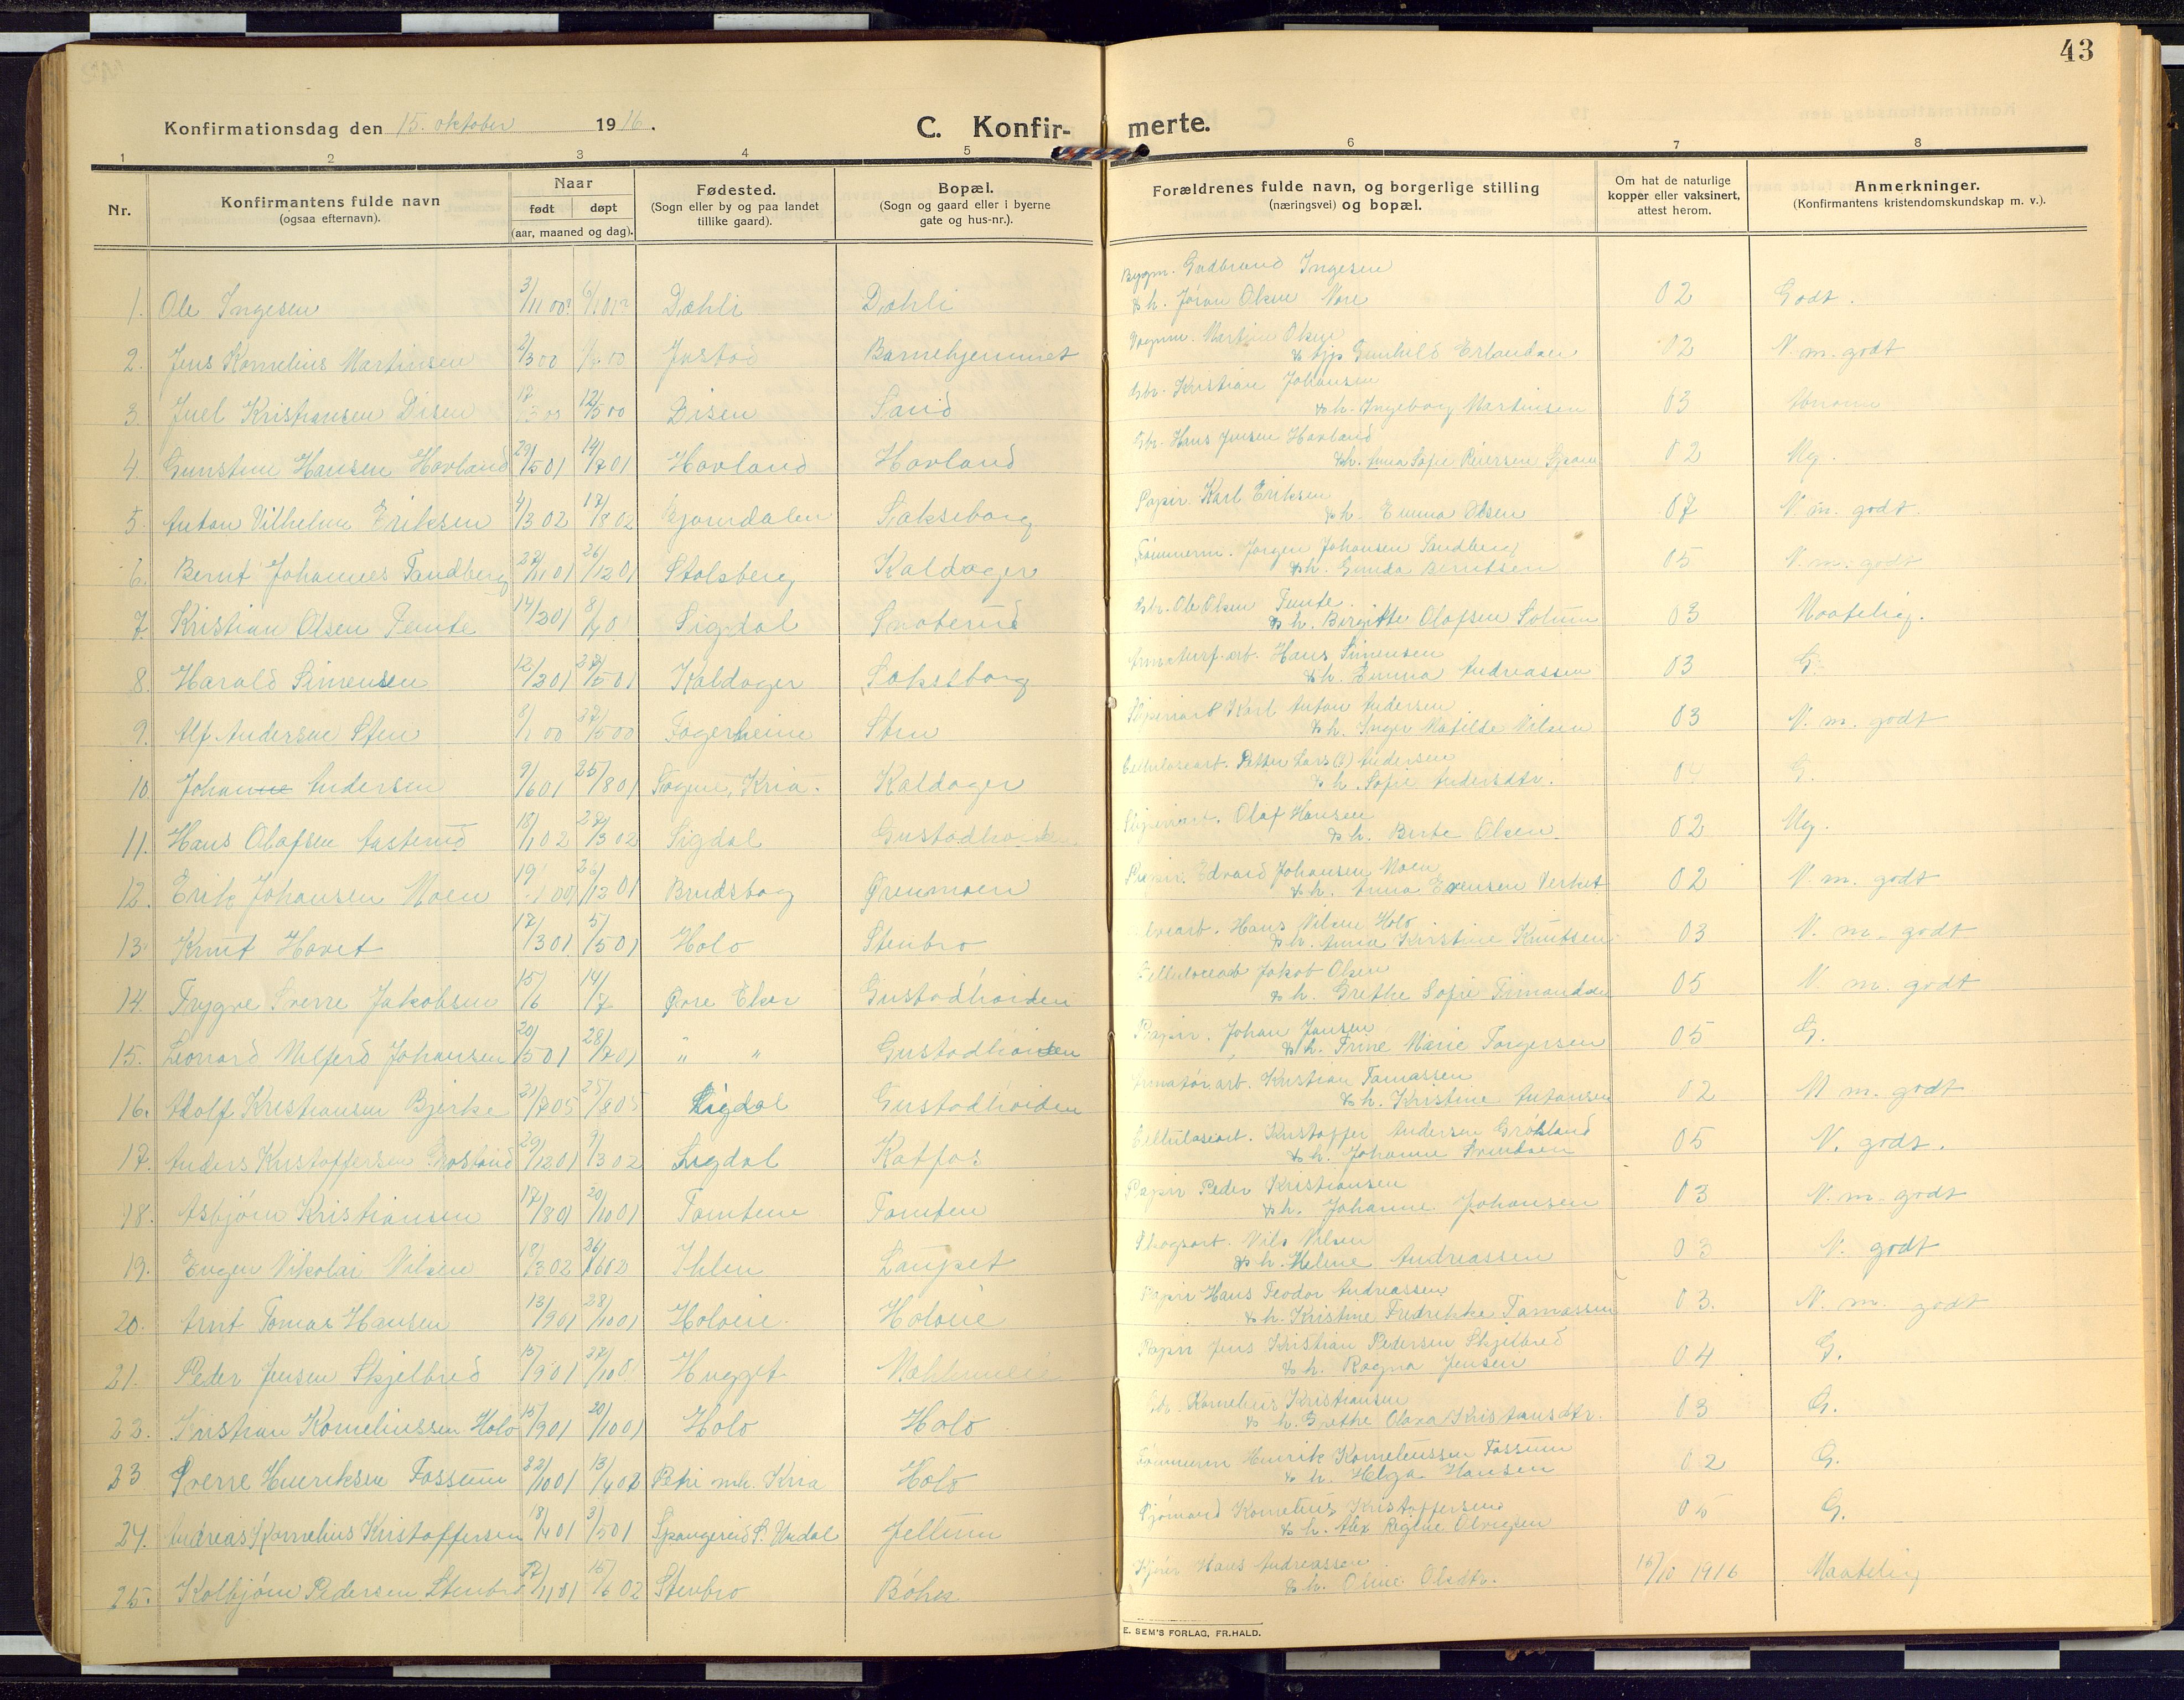 43
Konfirmationsdag den 15. oktober 1916.
C. Konfir- merte.
1 2 3 4 5 6 7 8
Nr.
Konfirmantens fulde navn
(ogsaa efternavn).
Naar
født døpt
(aar, maaned og dag).
Fødested.
(Sogn eller by og paa landet
tillike gaard).
Bopæl.
(Sogn og gaard eller i byerne
gate og hus-nr.).
Forældrenes fulde navn, og borgerlige stilling
(næringsvei) og bopæl.
Om hat de naturlige
kopper eller vaksinert,
attest herom.
Anmerkninger.
(Konfirmantens kristendomskundskap m. v.).
Bygm. Gudbrand Ingesen
1. Ole Ingesen 3/11 00? 6/1 01? Dæhli Dæhli & h. Jóran Olsen Nore 02 Godt.
Martin Olsen
2. Jens Kornelius Martinsen 2/3 00 Justad Barnehjemmet Gunhild Erlandsen 02 N. m. godt
Gbr. Kristian Johansen
3. Juel Kristiansen Disen 12/5 00 Disen Sand & h. Ingeborg Martinsen 03
Gbr. Hans Jensen Hovland
4. Gunstein Hansen Hovland 29/5 01 14/7 01 Hovland Hovland & h. Anna Sofie Reiersen 02 Mg.
Papir. Karl Eriksen
5. Anton Vilhelm Eriksen 4/3 02 17/8 02 Gjorndalen Sakseborg & h. Emma Olsen 07 N. m. godt
Tømmerm. Jorgen Johansen Tandberg
6. Bernt Johannes Tandberg 27/11 01 26/12 01 Stolsberg Kaldager & h. Gunda Berntsen 05 N. m. godt
Gbr. Ole Olsen Temte
7. Kristian Olsen Temte 14/2 01 Sigdal Snoterud & h. Birgitte Olafsen Solum 03 Maatelig.
Hans Simensen
8. Harald Simensen 12/2 01 Kaldager Sakseborg & h. Emma Andreassen 03 G.
Papirarb Karl Anton Andersen
9. Alf Andersen Sten 8/1 00 27/5 00 Fagerheim Sten & h. Inger Matilde Nilsen 03 N. m. godt
Cellulosearb. Petter Lars (?) Andersen
10. Johan Andersen 9/6 01 25/8 01 Sogne, Kria. Kaldager & h. Sofie Andersdtr. G.
Papirarb. Olaf Hansen
11. Hans Olafsen Aasterud 18/1 02 Sigdal & h. Berte Olsen. 02 Mg.
Papir. Edvard Johansen Moen
12. Erik Johansen Moen Brudsbag Grenmoen & h. Anna Evensen Verket 02 N. m. godt
Hans Nilsen Holo
13. Knut Hovet 17/3 01 5/5 01 Holo Stenbro & h. Anna Kirstine Knutsen 03 N. m. godt
Cellulosearb Jakob Olsen
14. Trygve Sverre Jakobsen 15/6 14/7 Øvre Eker Gustadhoiden & h. Grethe Sofie 05 N. m. godt
Papir. Johan Jansen
15. Leonard Nilferd Johansen 20/5 01 28/7 01 " " Gustadhoiden & h. Trine Marie Torgersen 05 G.
Armatúrarb. Kristian Tomassen
16. Adolf Kristiansen Bjerke 21/7 05 25/8 05 Sigdal Gustadhoiden & h. Kristine Antonsen 02 N. m. godt
Cellulosearb. Kristoffer Andersen Grósland
17. Anders Kristoffersen Grosland 29/12 01 9/3 02 Sigdal Katfos & h. Johanne Svendsen 05 N. godt.
Papir Peder Kristiansen
18. Asbjørn Kristiansen 17/8 01 20/10 01 Tomtene Tomten & h. Johanne Johansen 03 N. m. godt
Skogsarb. Nils Nilsen
19. Eugen Nikolai Nilsen 18/3 02 26/6 02 Ihlen Laupet & h. Helene Andreassen 03 N. godt
Papir Hans Teodor Andreassen
20. Arnt Tomas Hansen 13/9 01 28/10 01 Holoeie Holoeie & h. Kristine Fredrikke Tomassen 03. N. m. godt
Papir Jens Kristian Pedersen Skjelbred
21. Peder Jensen Skjelbred 15/9 01 27/10 01 Hugget & h. Ragna Jensen 04 G.
Gbr. Kornelius Kristiansen
22. Kristian Korneliussen Holo 15/9 01 20/10 01 Holo Holo & h. Grethe Olava Kristiansdtr. 03 G.
Tømmerm Henrik Korneliussen Fossum
23 Sverre Henriksen Fossum 22/10 01 13/4 02 Petri mh. Kria Holo & h. Helga Hansen 02 G.
Sjómand Kornelius Kristoffersen
24. Andreas Kornelius Kristoffersen 18/4 01 3/5 01 Spangereid S. Undal Jellum & h. Alex Regine Olvesen 05 G.
Hans Andreassen
25. Kolbjórn Pedersen Stenbro 27/11 01 15/6 02 Stenbro Bóhn & h. Oline Olsdtr. 15/10 1916 Maatelig
E. SEM'S FORLAG, FR.HALD.